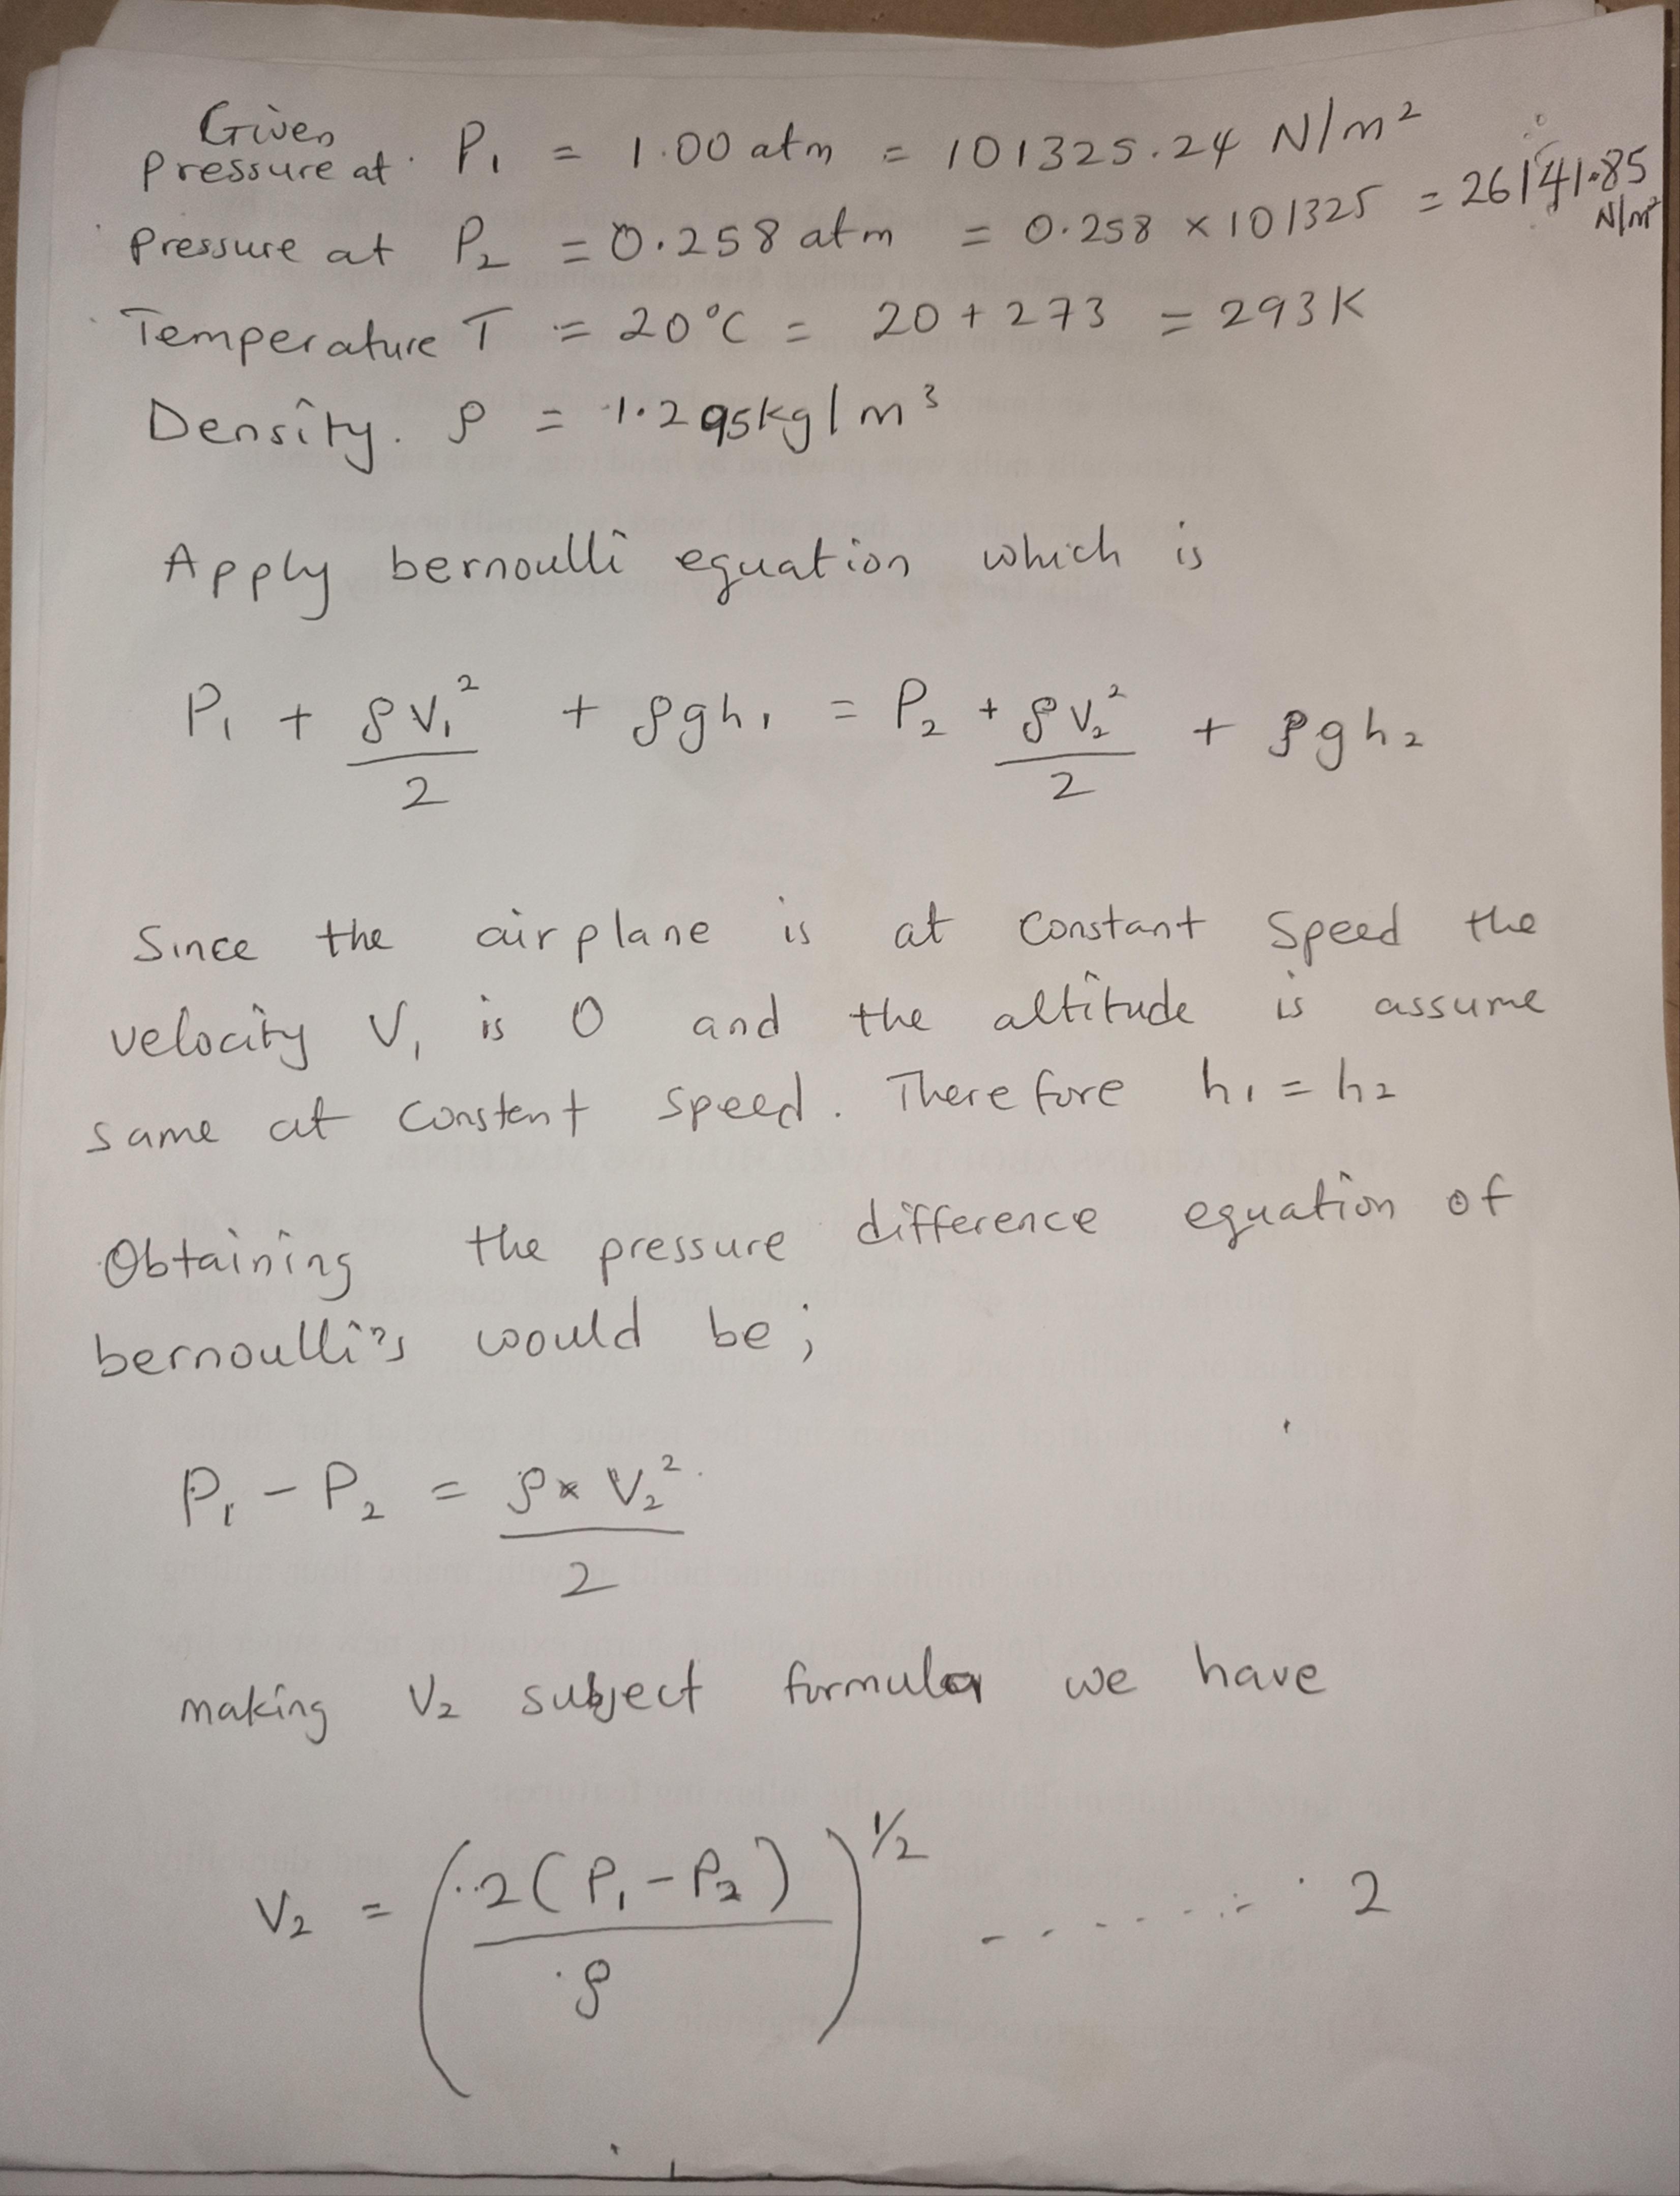 Given
Pressure at P₁ = 1.00 atm = 101325.24 N/m²
Pressure at P₂ = 0.258 atm = 0.258 × 101325 = 26141.85 N/m²
Temperature T = 20°C = 20 + 273 = 293K
Density. ρ = 1.295kg/m³
Apply bernoulli equation which is
P₁ + ρV₁²/2 + ρgh₁ = P₂ + ρV₂²/2 + ρgh₂
Since the airplane is at constant speed the
velocity V₁ is 0 and the altitude is assume
same at constent speed. Therefore h₁ = h₂
Obtaining the pressure difference equation of
bernoulli's would be;
P₁ - P₂ = ρ × V₂²/2
making V₂ subject formula we have
V₂ = (2(P₁ - P₂)/ρ)^1/2 ........ 2